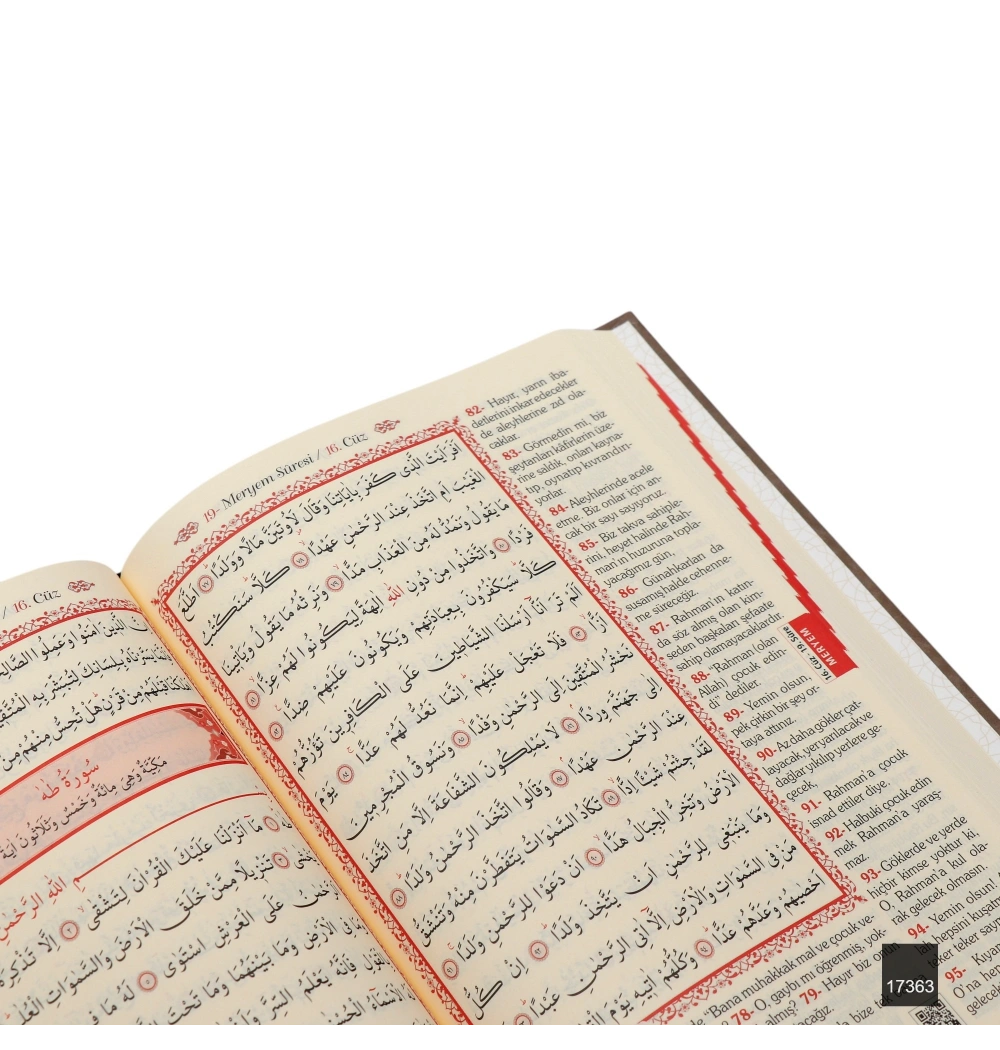 19- Meryem Sûresi / 16. Cüz
اَفَرَاَيْتَ الَّذ۪ي كَفَرَ بِاٰيَاتِنَا وَقَالَ لَاُو۫تَيَنَّ مَالًا وَوَلَدًا ﴿٧٧﴾ اَطَّلَعَ
الْغَيْبَ اَمِ اتَّخَذَ عِنْدَ الرَّحْمٰنِ عَهْدًا ﴿٧٨﴾ كَلَّا سَنَكْتُبُ
مَا يَقُولُ وَنَمُدُّ لَهُ مِنَ الْعَذَابِ مَدًّا ﴿٧٩﴾ وَنَرِثُهُ مَا يَقُولُ وَيَأْت۪ينَا
فَرْدًا ﴿٨٠﴾ وَاتَّخَذُوا مِنْ دُونِ اللّٰهِ اٰلِهَةً لِيَكُونُوا لَهُمْ عِزًّا ﴿٨١﴾
كَلَّا سَيَكْفُرُونَ بِعِبَادَتِهِمْ وَيَكُونُونَ عَلَيْهِمْ ضِدًّا ﴿٨٢﴾
اَلَمْ تَرَ اَنَّا اَرْسَلْنَا الشَّيَاط۪ينَ عَلَى الْكَافِر۪ينَ تَؤُزُّهُمْ
اَزًّا ﴿٨٣﴾ فَلَا تَعْجَلْ عَلَيْهِمْ اِنَّمَا نَعُدُّ لَهُمْ عَدًّا ﴿٨٤﴾ يَوْمَ
نَحْشُرُ الْمُتَّق۪ينَ اِلَى الرَّحْمٰنِ وَفْدًا ﴿٨٥﴾ وَنَسُوقُ الْمُجْرِم۪ينَ
اِلٰى جَهَنَّمَ وِرْدًا ﴿٨٦﴾ لَا يَمْلِكُونَ الشَّفَاعَةَ اِلَّا مَنِ اتَّخَذَ
عِنْدَ الرَّحْمٰنِ عَهْدًا ﴿٨٧﴾ وَقَالُوا اتَّخَذَ الرَّحْمٰنُ وَلَدًا ﴿٨٨﴾
لَقَدْ جِئْتُمْ شَيْـًٔا اِدًّا ﴿٨٩﴾ تَكَادُ السَّمٰوَاتُ يَتَفَطَّرْنَ مِنْهُ وَتَنْشَقُّ
الْاَرْضُ وَتَخِرُّ الْجِبَالُ هَدًّا ﴿٩٠﴾ اَنْ دَعَوْا لِلرَّحْمٰنِ وَلَدًا ﴿٩١﴾
وَمَا يَنْبَغ۪ي لِلرَّحْمٰنِ اَنْ يَتَّخِذَ وَلَدًا ﴿٩٢﴾ اِنْ كُلُّ
مَنْ فِي السَّمٰوَاتِ وَالْاَرْضِ اِلَّا اٰتِي الرَّحْمٰنِ عَبْدًا ﴿٩٣﴾
اَحْصٰيهُمْ وَعَدَّهُمْ عَدًّا ﴿٩٤﴾ وَكُلُّهُمْ اٰت۪يهِ يَوْمَ
82- Hayır, yarın iba-
detlerini inkar edecekler
de aleyhlerine zıd ola-
caklar.
83- Görmedin mi, biz
şeytanları kâfirlerin üze-
rine saldık, onları kayna-
tıp, oynatıp kıvrandırı-
yorlar.
84- Aleyhlerinde acele
etme. Biz onlar için an-
cak bir sayı sayıyoruz.
85- Biz takva sahiple-
rini, heyet halinde Rah-
man'ın huzuruna topla-
yacağımız gün,
86- Günahkarları da
susamış halde cehenne-
me süreceğiz.
87- Rahman'ın katın-
da söz almış olan kim-
seden başkaları şefaate
sahip olamayacaklardır.
88- "Rahman (olan
Allah) çocuk edin-
di" dediler.
89- Yemin olsun,
pek çirkin bir şey or-
taya attınız.
90- Az daha gökler çat-
layacak yer yarılacak ve
dağlar yıkılıp yerlere ge-
çecek,
91- Rahman'a çocuk
isnad ettiler diye.
92- Halbuki çocuk edin
mek Rahman'a yaraş-
maz.
93- Göklerde ve yerde
hiçbir kimse yoktur ki,
O, Rahman'a kul ola-
rak gelecek olmasın.
94- Yemin olsun!
hepsini kuşatı
teker teker say
95- Kıyam
O'na hep
gelecek
de "Bana muhakkak mal ve çocuk ve-
78- O, gaybı mı öğrenmiş, yok-
almış? 79- Hayır biz onu
cağız.
MERYEM
16. Cüz - 19. Sûre
/ 16. Cüz
سُورَةُ طٰهٰ
مَكِّيَّةٌ وَهِيَ مِائَةٌ وَخَمْسٌ وَثَلَاثُونَ اٰيَةً
اللّٰهِ الرَّحْمٰنِ
مَا اَنْزَلْنَا عَلَيْكَ الْقُرْاٰنَ لِتَشْقٰى ﴿٢﴾ اِلَّا تَذْكِرَةً
تَنْز۪يلًا مِمَّنْ خَلَقَ الْاَرْضَ وَالسَّمٰوَاتِ الْعُلٰى
عَلَى الْعَرْشِ اسْتَوٰى ﴿٥﴾ لَهُ مَا فِي
الْاَرْضِ وَمَا بَيْنَهُمَا وَمَا تَحْتَ
فَاِنَّهُ يَعْلَمُ السِّرَّ وَاَخْفٰى
17363